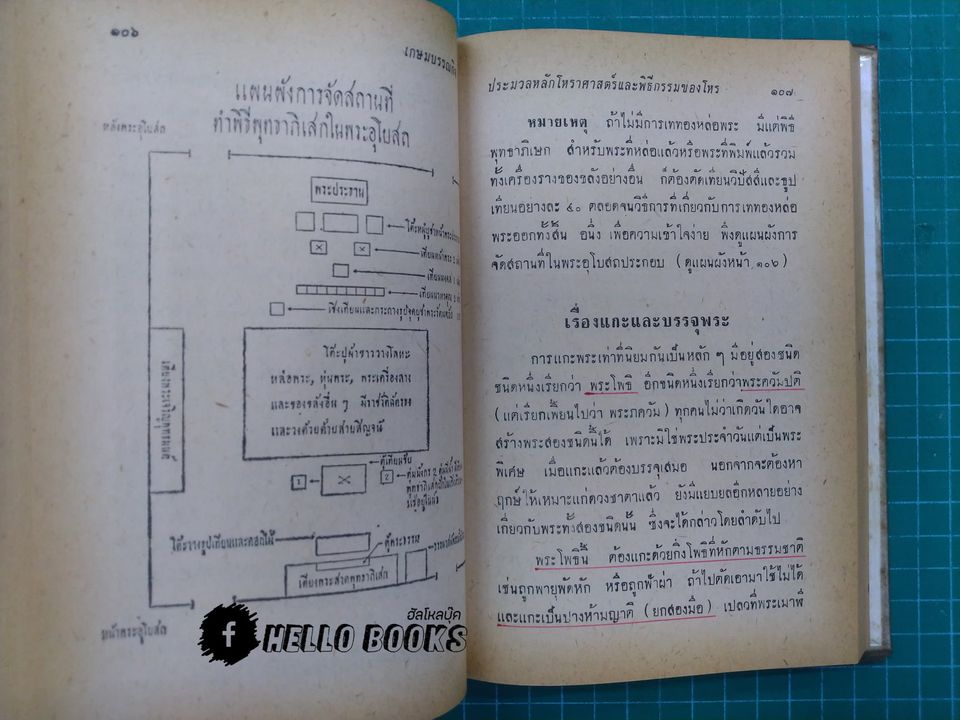 ๑๐๖
เกษมบรรณกิจ
แผนผังการจัดสถานที่
ทำพิธีพุทธาภิเสกในพระอุโบสถ
หลังพระอุโบสถ
พระประธาน
โต๊ะหมู่บูชาหน้าพระประธาน
เทียนมงคล
โต๊ะปูผ้าขาววางโลหะ
หล่อพระ, หุ่นพระ, พระเครื่องลาง
และของขลังอื่น ๆ มีราชวัติล้อมรอบ
และวงด้วยด้ายสายสิญจน์
เตียงพระเจริญพุทธมนต์
ตู้เทียนชัย
1
2
โต๊ะวางธูปเทียนและดอกไม้
ตู้พระธรรม
เตียงพระสวดพุทธาภิเสก
หน้าพระอุโบสถ
ฮัลโหลบุ๊ค
f HELLO BOOKS
ประมวลหลักโหราศาสตร์และพิธีกรรมของโหร
๑๐๗
หมายเหตุ ถ้าไม่มีการเททองหล่อพระ มีแต่พิธี
พุทธาภิเษก สำหรับพระที่หล่อแล้วหรือพระที่พิมพ์แล้วรวม
ทั้งเครื่องรางของขลังอย่างอื่น ก็ต้องตัดเทียนวิปัสสีและธูป
เทียนอย่างละ ๕๐ ตลอดจนวิธีการที่เกี่ยวกับการเททองหล่อ
พระออกทั้งสิ้น อนึ่ง เพื่อความเข้าใจง่าย พึงดูแผนผังการ
จัดสถานที่ในพระอุโบสถประกอบ (ดูแผนผังหน้า ๑๐๖)
เรื่องแกะและบรรจุพระ
การแกะพระเท่าที่นิยมกันเป็นหลัก ๆ มีอยู่สองชนิด
ชนิดหนึ่งเรียกว่า พระโพธิ อีกชนิดหนึ่งเรียกว่าพระควัมปติ
(แต่เรียกเพี้ยนไปว่า พระภควัม) ทุกคนไม่ว่าเกิดวันใดอาจ
สร้างพระสองชนิดนี้ได้ เพราะมิใช่พระประจำวันแต่เป็นพระ
พิเศษ เมื่อแกะแล้วต้องบรรจุเสมอ นอกจากจะต้องหา
ฤกษ์ให้เหมาะแก่ดวงชาตาแล้ว ยังมีแยบยลอีกหลายอย่าง
เกี่ยวกับพระทั้งสองชนิดนั้น ซึ่งจะได้กล่าวโดยลำดับไป
พระโพธินี้ ต้องแกะด้วยกิ่งโพธิที่หักตามธรรมชาติ
เช่นถูกพายุพัดหัก หรือถูกฟ้าผ่า ถ้าไปตัดเอามาใช้ไม่ได้
และแกะเป็นปางห้ามญาติ (ยกสองมือ) เปลวที่พระเมาฬี